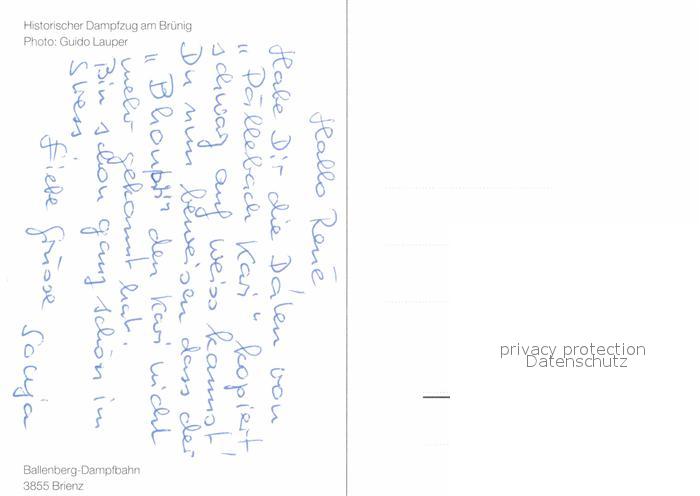 Historischer Dampfzug am Brünig
Photo: Guido Lauper
Hallo René
Habe Dir die Daten von
" Pöllebach Kari " kopiert!
schwarz auf weiss kannst
Du nun beweisen dass der
" Bhaupt in den Kari nicht
mehr gekannt hat.
Bin schon ganz schön im
Stress
Liebe Grüsse Sonja
Ballenberg-Dampfbahn
3855 Brienz
privacy protection
Datenschutz